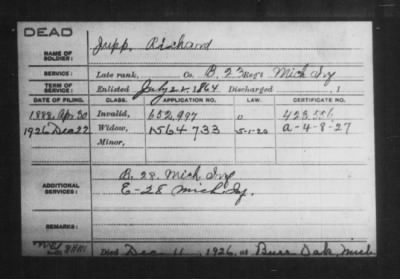 DEAD
NAME OF SOLDIER: Jupp, Richard
SERVICE: Late rank, Co. B, 23 Reg't Mich Inf
TERM OF SERVICE: Enlisted July 22 1864 Discharged , 1
DATE OF FILING. CLASS. APPLICATION NO. LAW. CERTIFICATE NO.
1888 Apr 30 Invalid,
1926 Dec 22 Widow, 1564 733 5-1-20 a-4-8-27
Minor,
ADDITIONAL SERVICES: B. 28. Mich Inf
E-28 Mich Inf.
REMARKS:
Died Dec 11, 1926, at Burr Oak, Mich